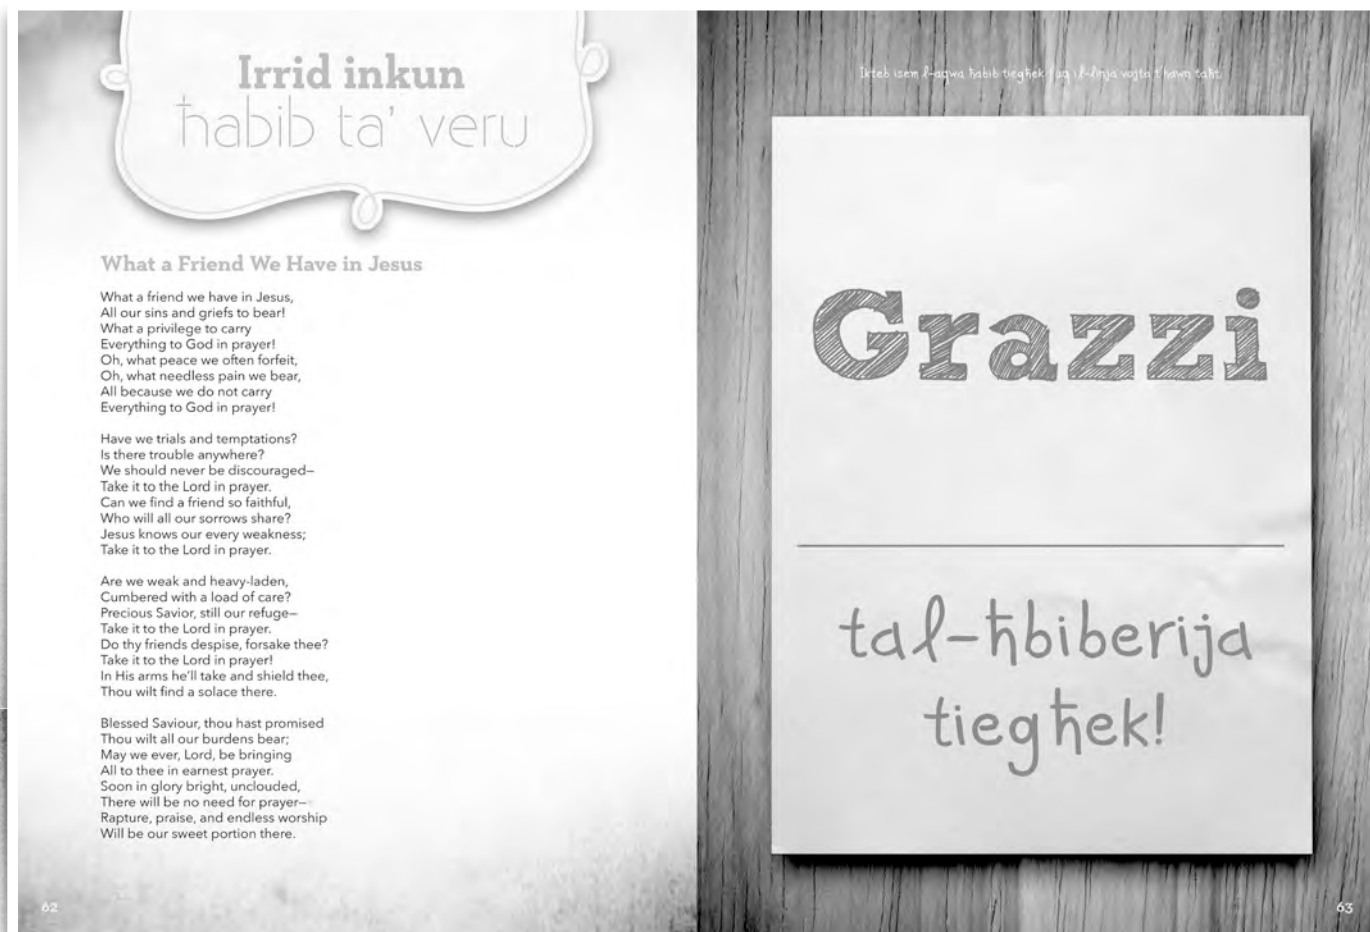 Irrid inkun
ħabib ta' veru
What a Friend We Have in Jesus
What a friend we have in Jesus,
All our sins and griefs to bear!
What a privilege to carry
Everything to God in prayer!
Oh, what peace we often forfeit,
Oh, what needless pain we bear,
All because we do not carry
Everything to God in prayer!
Have we trials and temptations?
Is there trouble anywhere?
We should never be discouraged—
Take it to the Lord in prayer.
Can we find a friend so faithful,
Who will all our sorrows share?
Jesus knows our every weakness;
Take it to the Lord in prayer.
Are we weak and heavy-laden,
Cumbered with a load of care?
Precious Savior, still our refuge—
Take it to the Lord in prayer.
Do thy friends despise, forsake thee?
Take it to the Lord in prayer!
In His arms he'll take and shield thee,
Thou wilt find a solace there.
Blessed Saviour, thou hast promised
Thou wilt all our burdens bear;
May we ever, Lord, be bringing
All to thee in earnest prayer.
Soon in glory bright, unclouded,
There will be no need for prayer—
Rapture, praise, and endless worship
Will be our sweet portion there.
62
Ikteb isem l-aqwa ħabib tiegħek fuq il-linja vojta t'hawn taħt.
Grazzi
tal-ħbiberija
tiegħek!
63